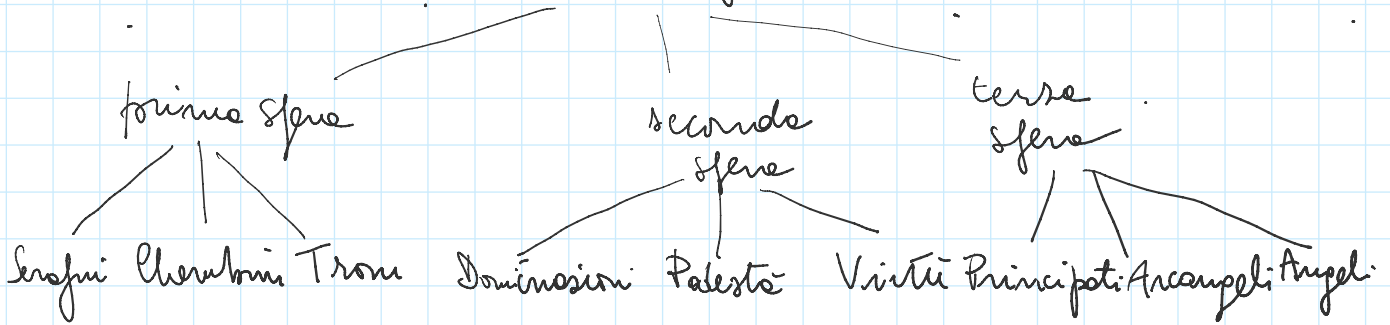 prima sfera
seconda
sfera
terza
sfera
Serafini Cherubini Troni
Dominazioni Potestà Virtù
Principati Arcangeli Angeli